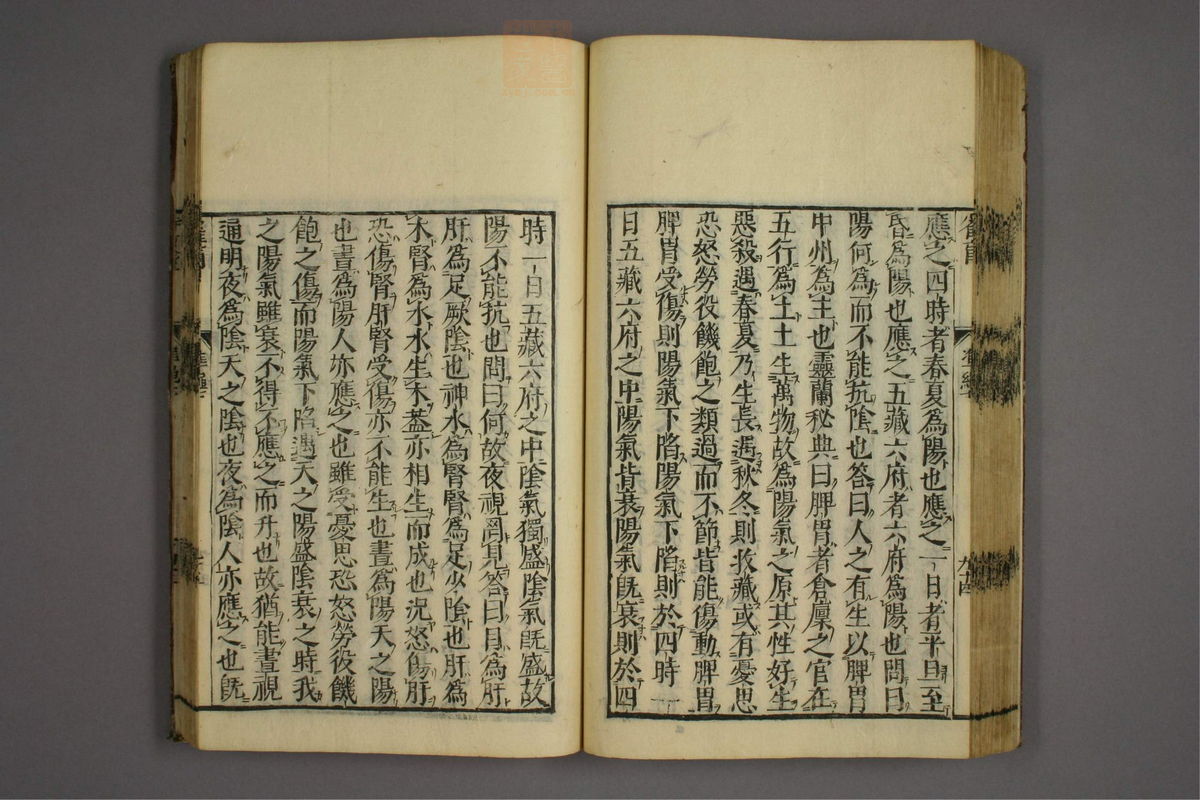 應之四時者春夏爲陽也應之一日者平旦至
昏爲陽也應之五藏六府者六府爲陽也問曰
陽何爲而不能抗陰也答曰人之有生以脾胃
中州爲主也靈蘭秘典曰脾胃者倉廩之官在
五行爲土土生萬物故爲陽氣之原其性好生
惡殺遇春夏乃生長遇秋冬則收藏或有憂思
恐怒勞役饑飽之類過而不節皆能傷動脾胃
脾胃受傷則陽氣下陷陽氣下陷則於四時一
日五藏六府之中陽氣皆衰陽氣旣衰則於四
時一日五藏六府之中陰氣獨盛陰氣旣盛故
陽不能抗也問曰何故夜視罔見答曰目爲肝
肝爲足厥陰也神水爲腎腎爲足少陰也肝爲
木腎爲水水生木蓋亦相生而成也況怒傷肝
恐傷腎肝腎受傷亦不能生也晝爲陽天之陽
也晝爲陽人亦應之也雖受憂思恐怒勞役饑
飽之傷而陽氣下陷遇天之陽盛陰衰之時我
之陽氣雖衰不得不應之而升也故猶能晝視
通明夜爲陰天之陰也夜爲陰人亦應之也旣